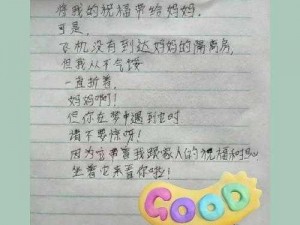 将我的祝福带给妈妈，
可是，
飞机没有到达妈妈的隔离房，
但我从不气馁
一直折着，
妈妈啊！
但你在梦中遇到它时
请不要惊呀！
因为它带着我跟家人的祝福
坐着它来看你啦！
GOOD